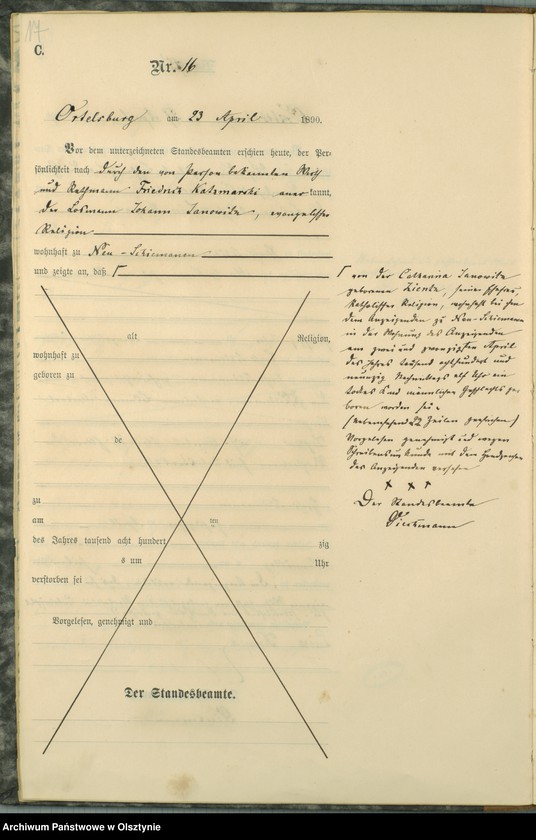 17
C.
Nr. 16
Ortelsburg am 23 April 1890.
Vor dem unterzeichneten Standesbeamten erschien heute, der Per-
sönlichkeit nach durch den von Person bekannten Wirth
und Rathmann Friedrich Katzmarski aner kannt,
der Losmann Johann Janowitz, evangelischer
Religion
wohnhaft zu Neu-Schiemanen
und zeigte an, daß
von der Catharina Janowitz
gebornen Zientz, seiner Ehefrau,
katholischer Religion, wohnhaft bei ihm
dem Anzeigenden zu Neu-Schiemanen
in der Wohnung des Anzeigenden
am zwei und zwanzigsten April
des Jahres tausend achthundert und
neunzig Nachmittags elf Uhr ein
todtes Kind männlichen Geschlechts ge-
boren worden sei.
(Nebenstehend 22 Zeilen gestrichen)
Vorgelesen genehmigt und wegen
Schreibensunkunde mit dem Handzeichen
des Anzeigenden versehen
x x x
Der Standesbeamte
alt Religion,
wohnhaft zu
geboren zu
de
zu
am ten
des Jahres tausend acht hundert zig
s um Uhr
verstorben sei
Vorgelesen, genehmigt und
Der Standesbeamte.
Archiwum Państwowe w Olsztynie